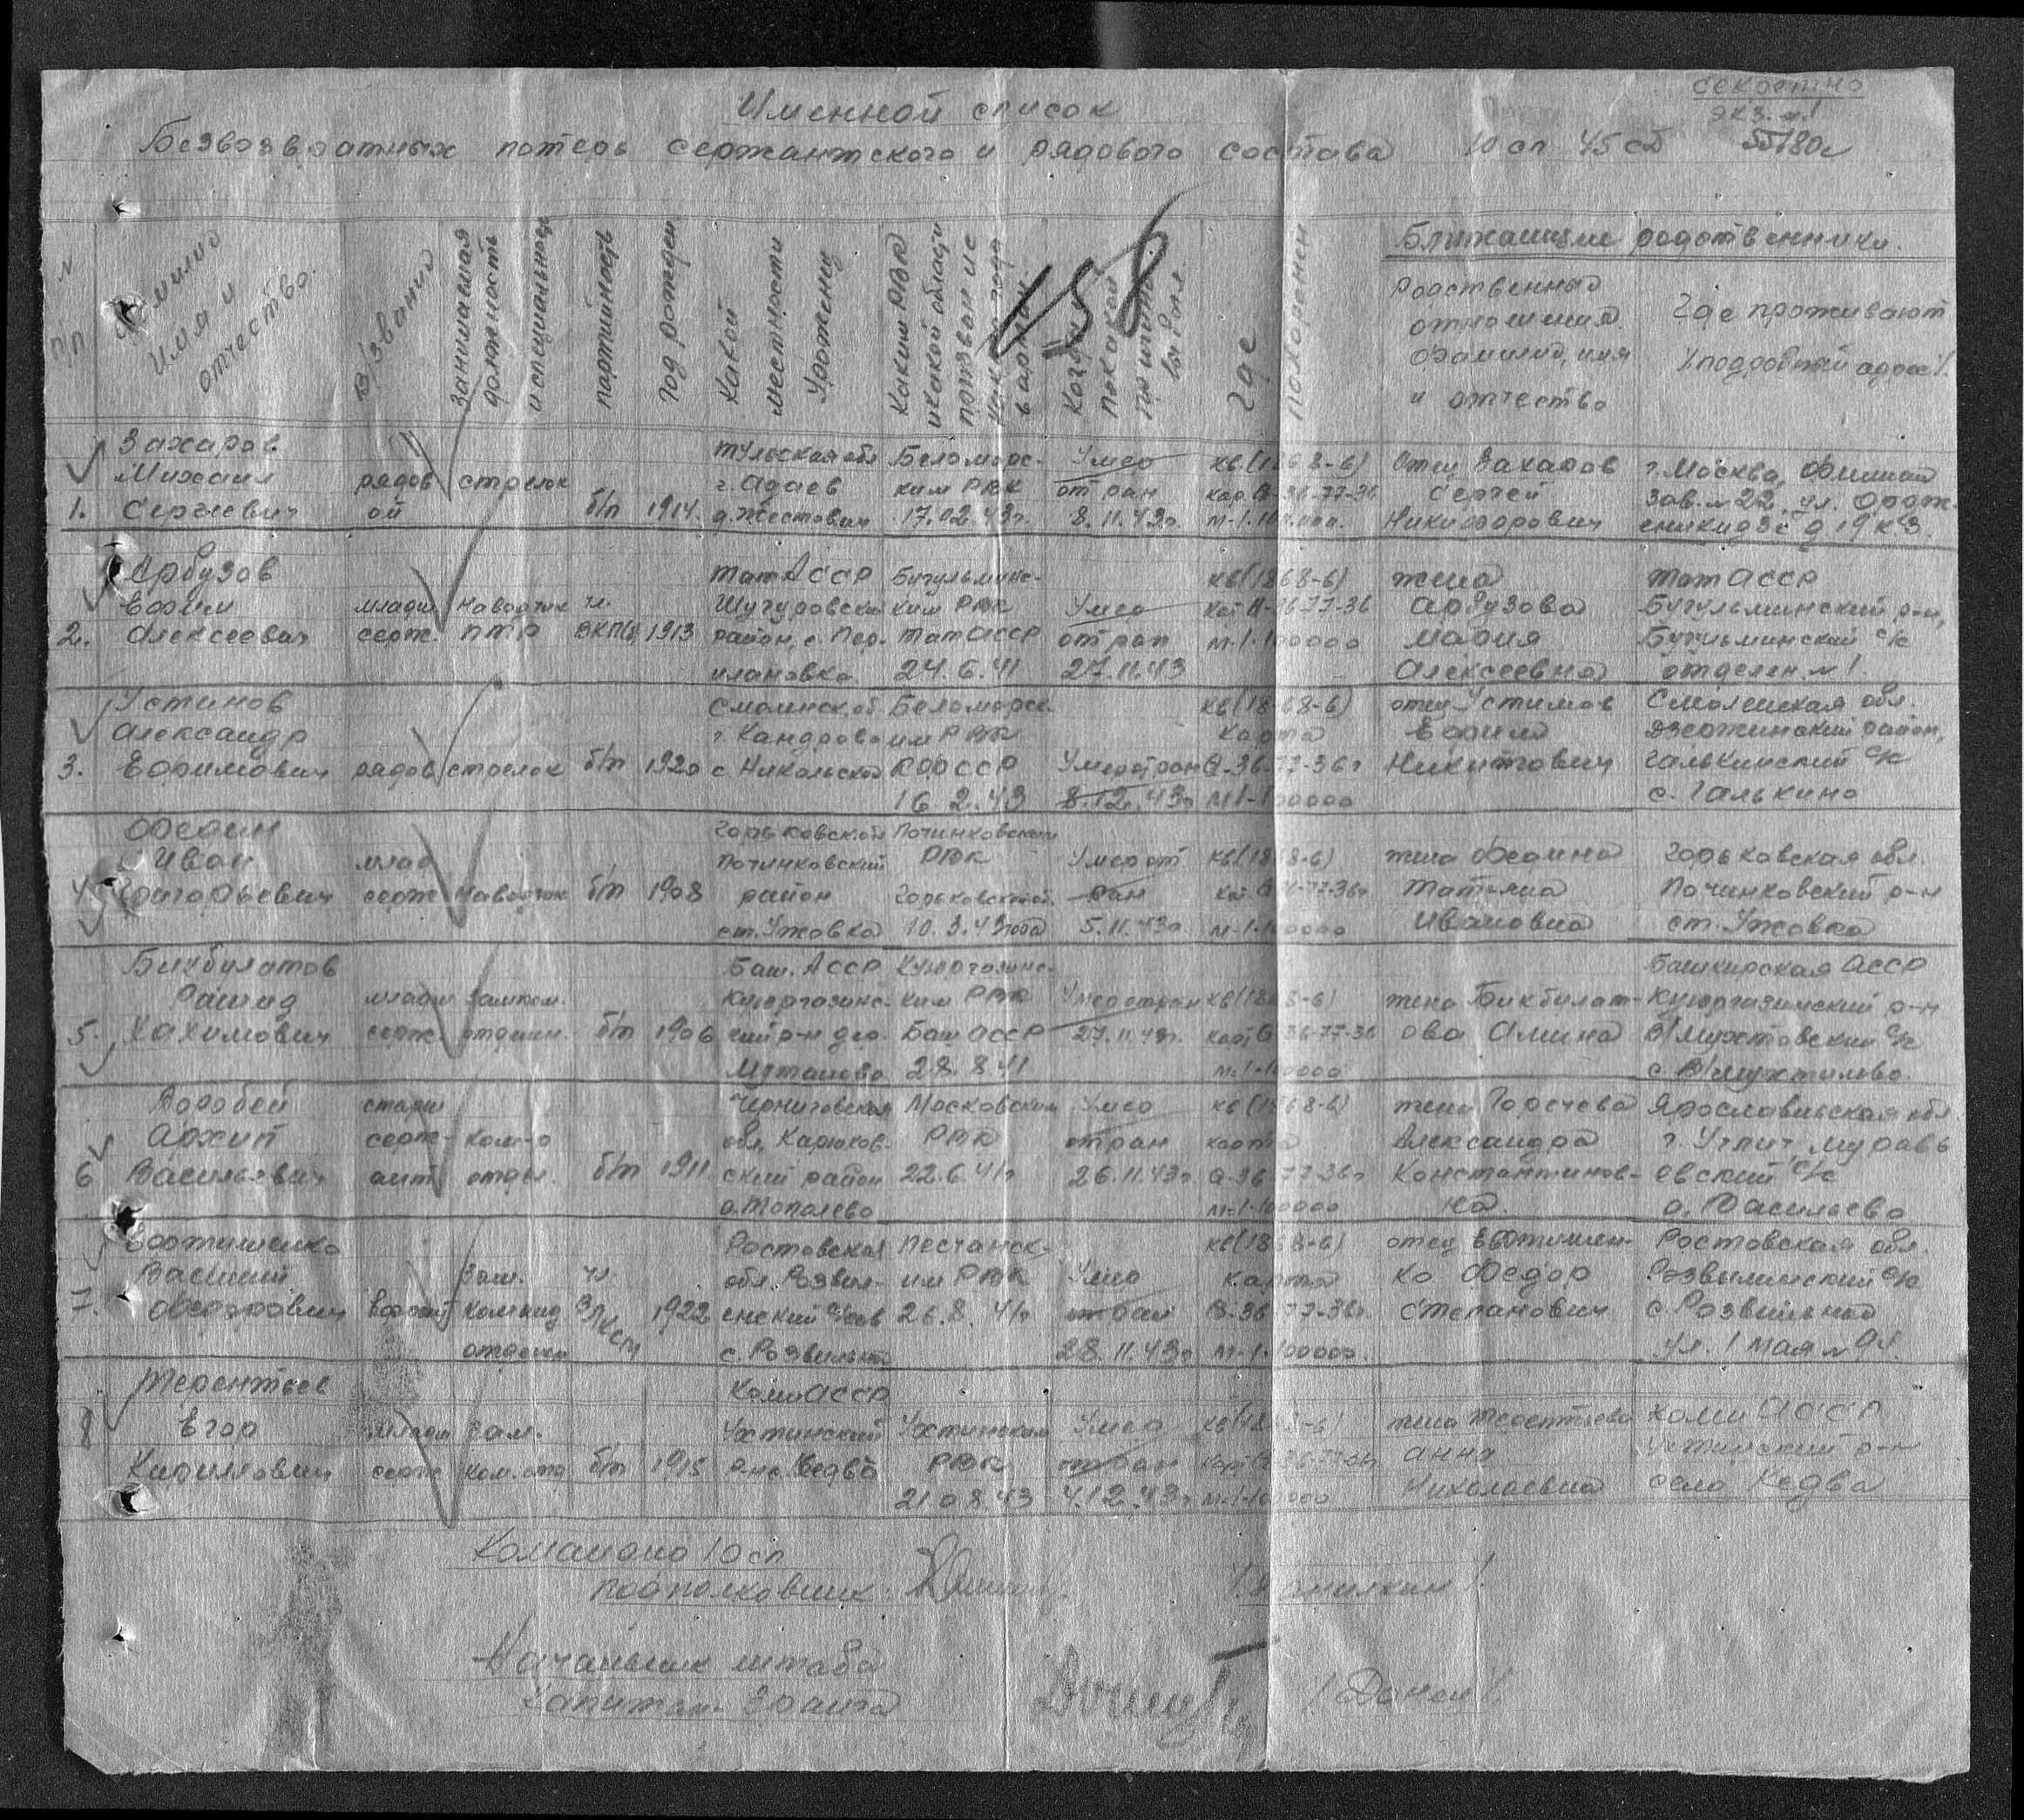 секретно
экз. №1
Именной список
Безвозвратных потерь сержантского и рядового состава 10 сп 45 сд 55180с
158
№ п/п
Фамилия имя и отчество.
В/звание
Занимаемая должность и специальность
партийность
Год рожден
Какой местности урожениц
Каким РВК и какой области призван и с
Когда и по какой причине выбыл.
Где похоронен
Ближайшие родственники.
Родственные отношения. Фамилия, имя и отчество
Где проживают /подробный адрес/.
Захаров Тульская обл Беломорс- Умер кв.(1868-6) Отец Захаров г. Москва,
Михаил рядов стрелок г. ким РВК от ран кар. О-36-77-36 Сергей зав. №22, ул. Ордж-
1. Сергеевич ой б/п 1914. 17.02.43г. 8.11.43г. м-1-100.000. Никифорович еникидзе д.19 к.3.
Арбузов Тат АССР Бугульминс- кв(1868-6) жена Тат АССР
Ефим младш наводчик чл. Шугуровский ким РВК Умер кар О-36-77-36 Арбузова Бугульминский р-н,
2. Алексеевич серж. ПТР ВКП(б) 1913 район, с. Тат АССР от ран м-1-100000 Мария Бугульминский с/с
24.6.41 27.11.43 Алексеевна отделен. №1.
Устинов Смоленск. об Беломорск кв(1868-6) отец Устинов Смоленская обл.
Александр г. Кондрово им РВК карта Ефим Дзержинский район,
3. Ефимович рядов стрелок б/п 1920 с Никольское РСФСР Умер от ран О-36-77-36г Никитович Галькинский с/с
16 2.43 8.12.43г м 1-100000 с. Галькино
Федин Горьковск. об Починковским
Иван млад Починковский РВК Умер от кв(1868-6) жена Федина Горьковская обл.
4. Григорьевич серж наводчик б/п 1908 район Горьковской. ран Татьяна Починковский р-н
ст. Ужовка 10.3.43года 5.11.43г. м-1-100000 Ивановна ст. Ужовка
Бикбулатов Баш. АССР Куюргазинс- Башкирская АССР
Рашид младш зам.ком. Куюргазинс- ким РВК Умер от ран кв(1868-6) жена Бикбулат- Куюргазинский р-н
5. Хакимович серж. отделен. б/п 1906 кий р-н дер. Баш АССР 27.11.43г. кар О-36-77-36 ова Амина с/с
Мутаново 28.8.41 м-1-100000
Воробей старш Черниговская Московским Умер кв(1868-6) жена Горячева Ярославльская обл.
Архип серж- ком-р обл, Карюков- РВК от ран карта Александра г. Углич, Муравь
6 Васильевич ант отдел. б/п 1911 ский район 22.6.41г 26.11.43г О-36-77-36г Константинов- евский с/с
д. Тополево м-1-100000 на. д. Васильево
Евтишенко Ростовская Песчанск- кв(1868-6) отец Евтишен- Ростовская обл.
Василий Зам. чл. обл. Развил- им РВК Умер карта ко Федор Развиленский с/с
7. Федорович команд ВЛКСМ 1922 енский с/сов 26.8.41г от ран О-36-77-36г. Степанович с. Развильное
отделен с. Развильное 28.11.43г м-1-100000. ул. 1 мая №94.
Терентьев Коми АССР
8 Егор младш зам. Ухтинский Ухтинским Умер кв(1868-6) жена Терентьева Коми АССР
Кириллович серж ком. отд б/п 1915 р-н с. Кедва РВК от ран Анна Ухтинский р-н
21 08.43 4.12.43г м-1-100000 Николаевна село Кедва
Командир 10 сп
подполковник
Начальник штаба
капитан